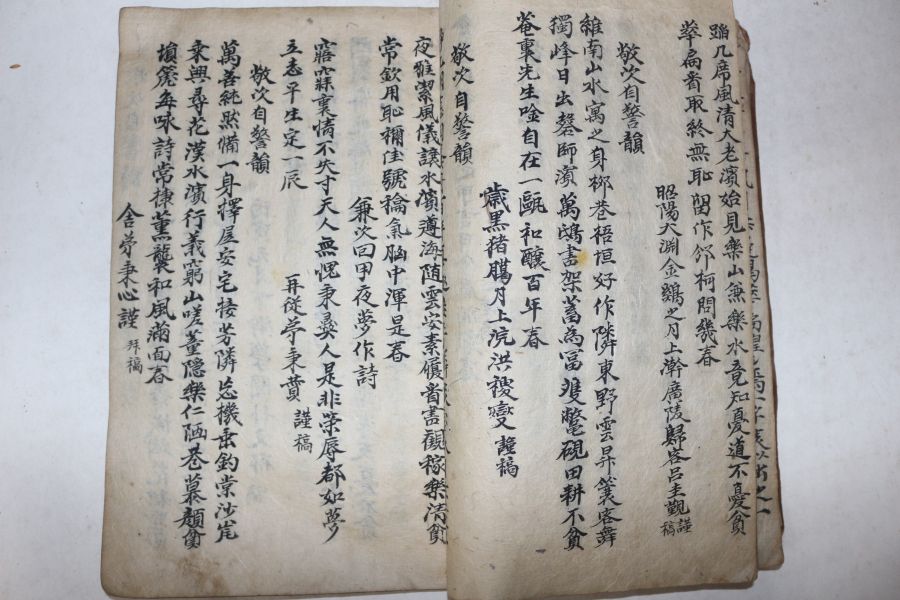 几席風清大老濱始見樂山兼樂水竟知憂道不憂貧
華扁眷取終無恥留作柯問幾春
昭陽大淵金鷄之月上澣廣陵歸客呂圭觀謹稿
敬次自警韻
維南山水寓之身柳巷梧垣好作隣東野雲昇簑客舞
獨峰日出磬師濱萬鴟書架蓄為富隻鼈硯田耕不貧
菴裏先生唫自在一甌和釀百年春
歲黑猪臈月上浣洪稷燮謹稿
敬次自警韻
夜雖潔風儀譲水濱遵海随雲安素履耆書觀稼樂清貧
常欽用恥禰佳號氣胸中渾是春
兼次回甲夜夢作詩
寤寐裏情不失寸天人無愧秉彛人是非榮辱都如夢
立志平生定一辰 再従苐秉賁謹稿
敬次自警韻
萬善純然備一身擇居安宅接芳隣忘機垂釣棠沙岸
乘興尋花漢水濱行義窮山嗟董隱樂仁陋巷慕顔貧
塤篪每咏詩常棣薰襲和風滿面春
舍苐秉心謹拜稿